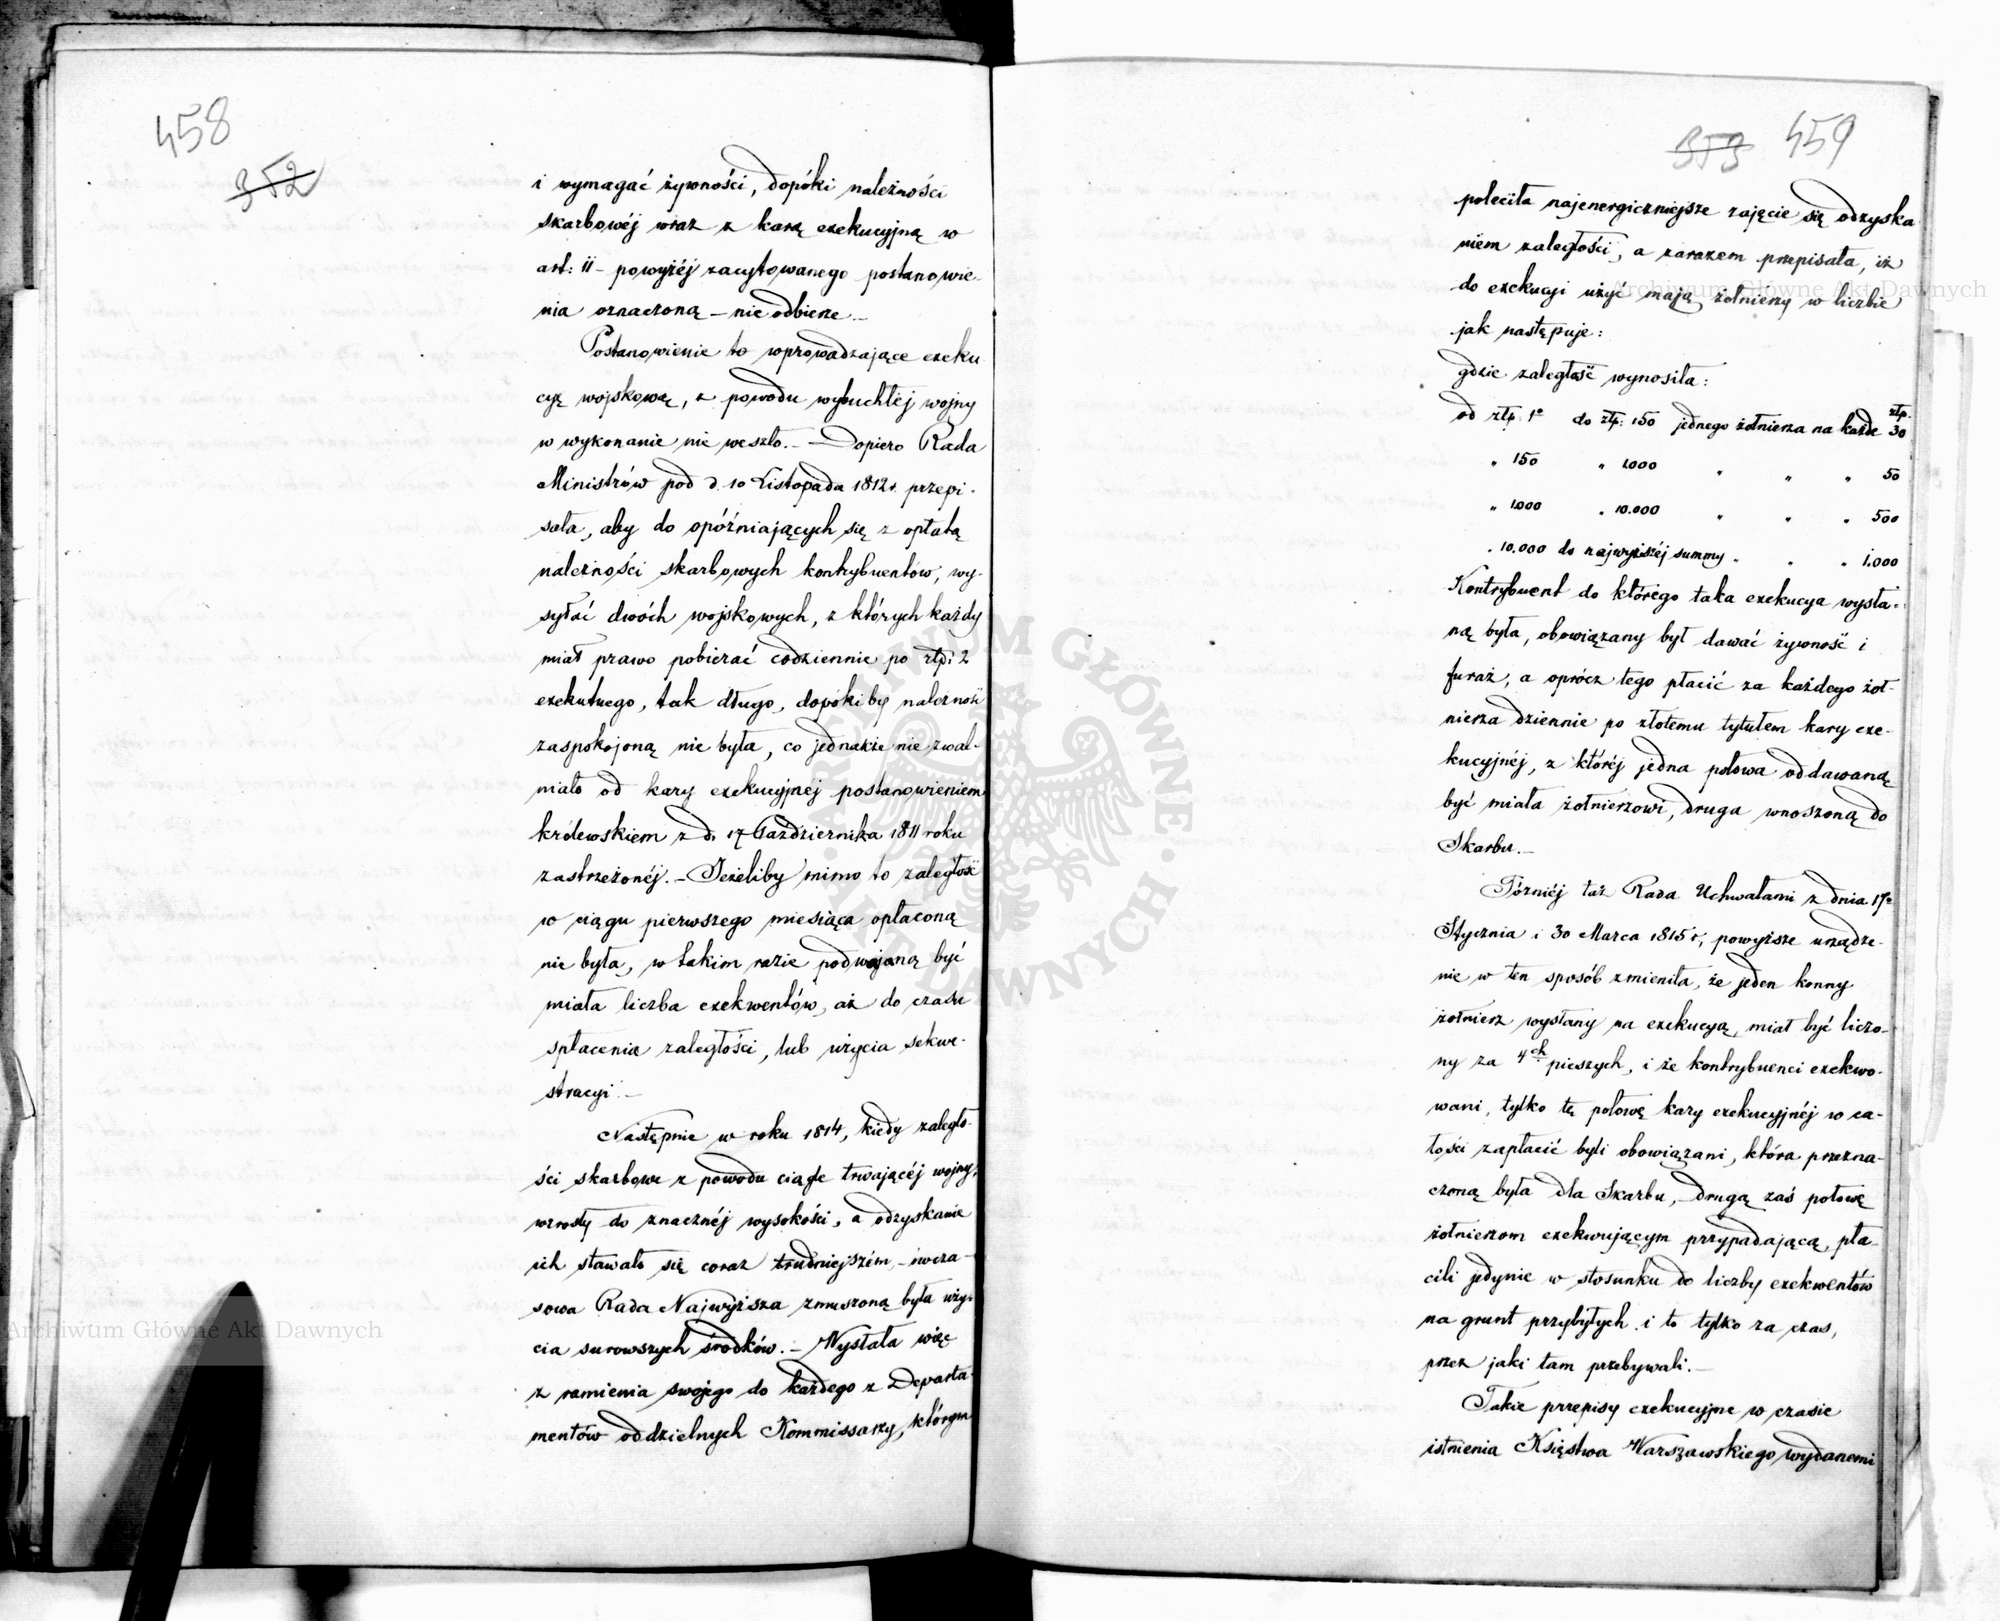 458
352
i wymagać żywności, dopóki należności
skarbowéj wraz z karą exekucyjną w
art: 11 – powyżéj zacytowanego postanowie-
nia oznaczoną – nie odbierze. –
Postanowienie to wprowadzające exeku
cyę wojskową, z powodu wybuchłéj wojny
w wykonanie nie weszło. – Dopiero Rada
Ministrów pod d. 10 Listopada 1812 r. przepi-
sała, aby do opóźniających się z opłatą
należności skarbowych kontrybuentów, wy-
syłać dwóch wojskowych, z których każdy
miał prawo pobierać codziennie po złp: 2
exekutnego, tak długo, dopóki by należność
zaspokojoną nie była, co jednakże nie zwal-
niało od kary exekucyjnéj postanowieniem
królewskiem z d. 17 Października 1811 roku
zastrzeżonéj. – Jeżeliby mimo to zaległość
w ciągu pierwszego miesiąca opłaconą
nie była, w takim razie podwojoną być
miała liczba exekwentów, aż do czasu
spłacenia zaległości, lub użycia sekwe-
stracyi. –
Następnie w roku 1814, kiedy zaległo-
ści skarbowe z powodu ciągle trwającéj wojny,
wzrosły do znacznéj wysokości, a odzyskanie
ich stawało się coraz trudniejszém, – ówcza-
sowa Rada Najwyższa zmuszoną była uży-
cia surowszych środków. – Wysłała więc
z ramienia swojego do każdego z Departa-
mentów oddzielnych Kommissarzy, którym
353 459
poleciła najenergiczniejsze zajęcie się odzyska
niem zaległości, a zarazem przepisała, iż
do exekucyi użyć mają żołnierzy w liczbie
jak następuje:
gdzie zaległość wynosiła:
od złp. 1o do złp: 150 jednego żołnierza na każde złp. 30
" 150 " 1000 " " " 50
" 1000 " 10.000 " " " 500
" 10.000 do najwyższéj summy " " " 1.000
Kontrybuent do którego taka exekucya wysła-
ną była, obowiązany był dawać żywność i
furaż, a oprócz tego płacić za każdego żoł-
nierza dziennie po złotemu tytułem kary exe-
kucyjnéj, z któréj jedna połowa oddawaną
być miała żołnierzowi, druga wnoszoną do
Skarbu. –
Później taż Rada Uchwałami z dnia 17o
Stycznia i 30 Marca 1815 r, powyższe urządze-
nie w ten sposób zmieniła, że jeden konny
żołnierz wysłany na exekucyą, miał być liczo-
ny za 4ch pieszych, i że kontrybuenci exekwo-
wani, tylko tę połowę kary exekucyjnéj w ca-
łości zapłacić byli obowiązani, która przezna-
czoną była dla Skarbu, drugą zaś połowę
żołnierzom exekwującym przypadającą, pła-
cili jedynie w stosunku do liczby exekwentów
na grunt przybyłych i to tylko za czas,
przez jaki tam przebywali. –
Takie przepisy exekucyjne w czasie
istnienia Księstwa Warszawskiego wydanemi
Archiwum Główne Akt Dawnych
Archiwum Główne Akt Dawnych
ARCHIWUM GŁÓWNE AKT DAWNYCH